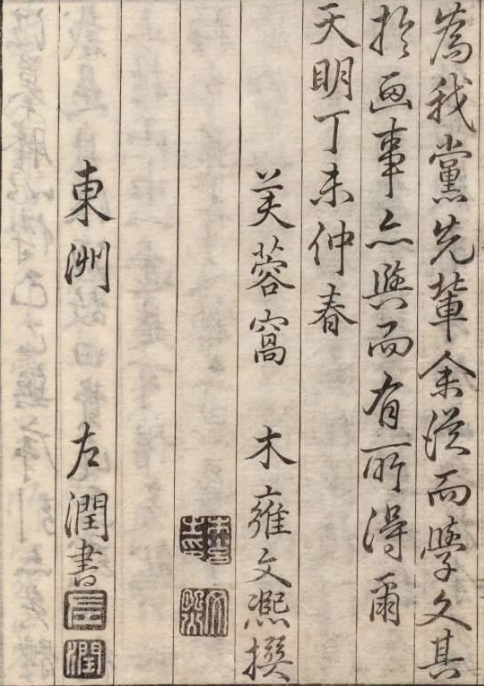 為我黨先輩余從而學文其
於畫事亦與而有所得爾
天明丁未仲春
芙蓉窩 木雍文熙撰
東洲 左潤書
左潤